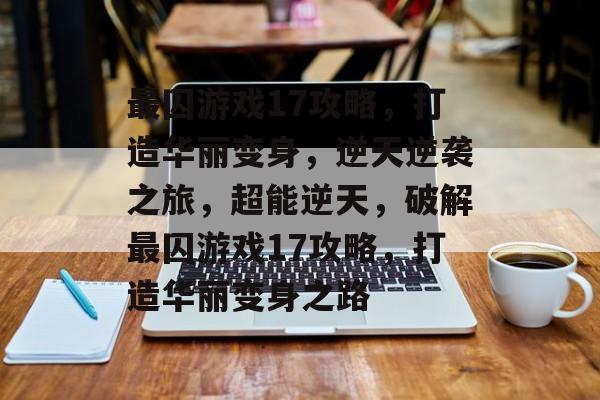 最囚游戏17攻略，打
造华丽变身，逆天逆袭
之旅，超能逆天，破解
最囚游戏17攻略，打
造华丽变身之路